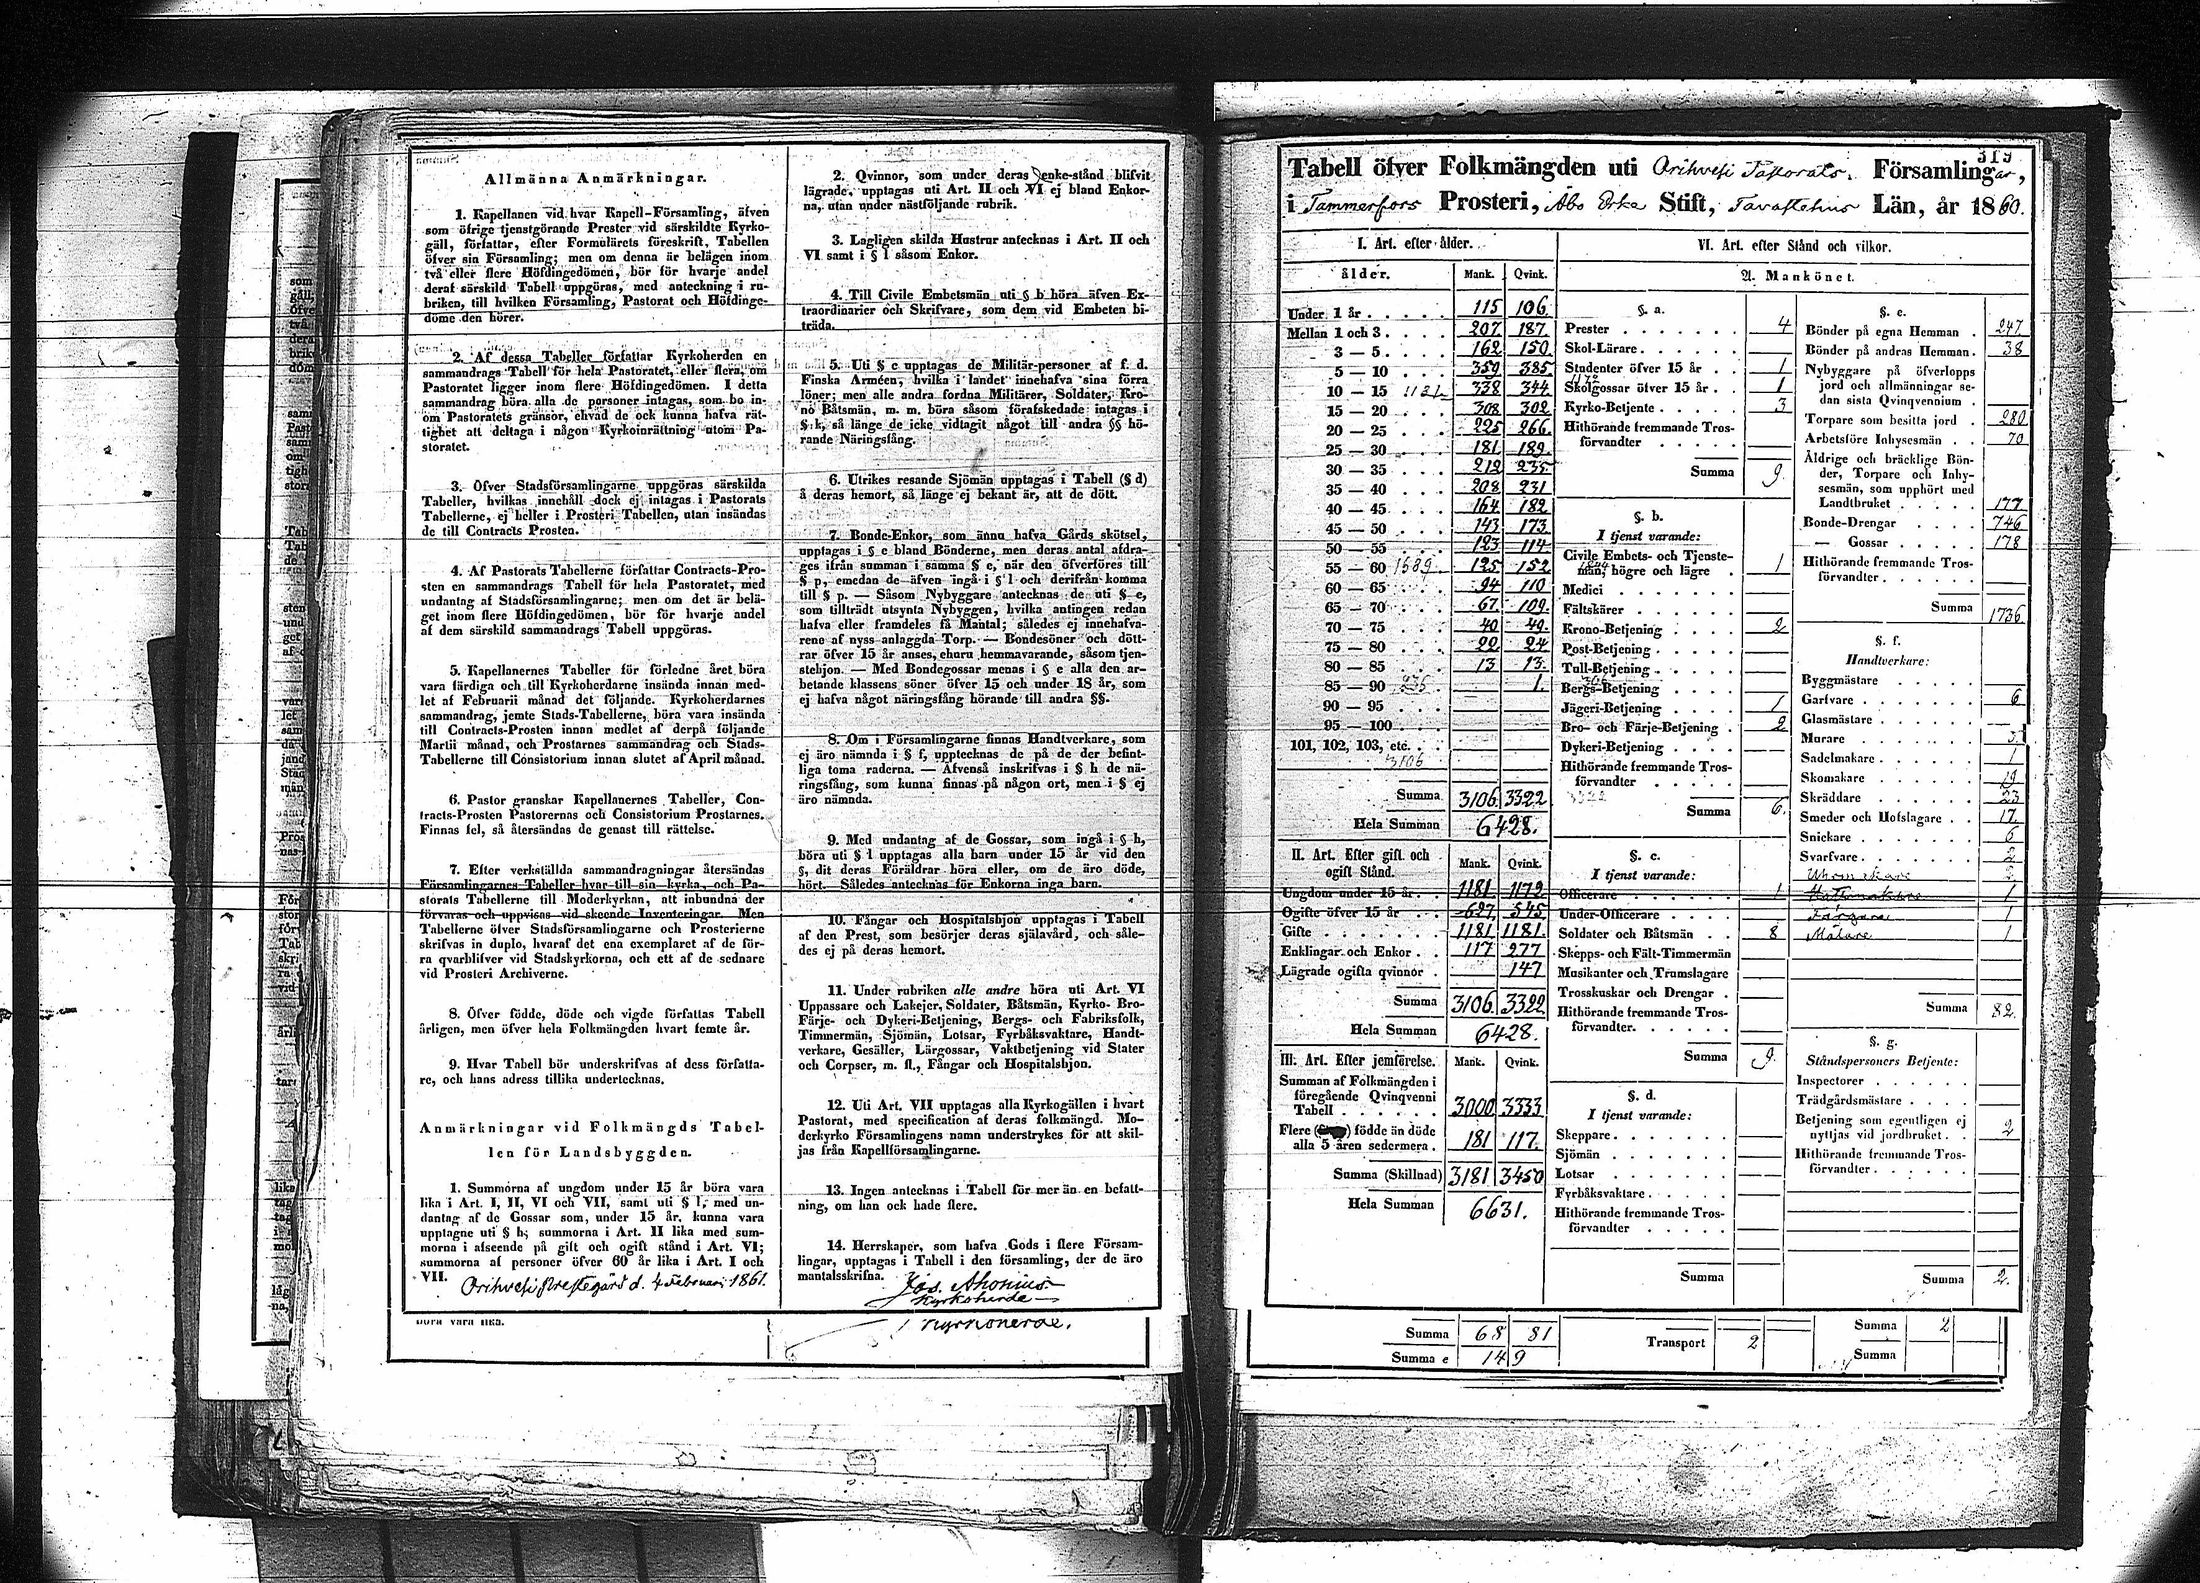 Allmänna Anmärkningar.
1. Kapellanen vid hvar Kapell-Församling, äfven
som öfrige tjenstgörande Prester vid särskildte Kyrko-
gäll, författar, efter Formulärets föreskrift, Tabellen
öfver sin Församling; men om denna är belägen inom
två eller flere Höfdingedömen, bör för hvarje andel
deraf särskild Tabell uppgöras, med anteckning i ru-
briken, till hvilken Församling, Pastorat och Höfdinge-
döme den hörer.
2. Af dessa Tabeller författar Kyrkoherden en
sammandrags Tabell för hela Pastoratet, eller flera, om
Pastoratet ligger inom flere Höfdingedömen. I detta
sammandrag böra alla de personer intagas, som bo in-
om Pastoratets gränsor, ehvad de ock kunna hafva rät-
tighet att deltaga i någon Kyrkoinrättning utom Pa-
storatet.
3. Öfver Stadsförsamlingarne uppgöras särskilda
Tabeller, hvilkas innehåll dock ej intages i Pastorats
Tabellerne, ej heller i Prosteri Tabellen, utan insändas
de till Contracts Prosten.
4. Af Pastorats Tabellerne författar Contracts-Pro-
sten en sammandrags Tabell för hela Pastoratet, med
undantag af Stadsförsamlingarne; men om det är belä-
get inom flere Höfdingedömen, bör för hvarje andel
af dem särskild sammandrags Tabell uppgöras.
5. Kapellanernes Tabeller för förledne året böra
vara färdiga och till Kyrkoherdarne insända innan med-
let af Februarii månad det följande. Kyrkoherdarnes
sammandrag, jemte Stads-Tabellerne, böra vara insända
till Contracts-Prosten innan medlet af derpå följande
Martii månad, och Prostarnes sammandrag och Stads-
Tabellerne till Consistorium innan slutet af April månad.
6. Pastor granskar Kapellanernes Tabeller, Con-
tracts-Prosten Pastorernas och Consistorium Prostarnes.
Finnas fel, så återsändas de genast till rättelse.
7. Efter verkställda sammandragningar återsändas
Församlingarnes Tabeller hvar till sin kyrka, och Pa-
storats Tabellerne till Moderkyrkan, att inbundna der
förvaras och uppvisas vid skeende Inventeringar. Men
Tabellerne öfver Stadsförsamlingarne och Prosterierne
skrifvas in duplo, hvaraf det ena exemplaret af de för-
ra qvarblifver vid Stadskyrkorna, och ett af de sednare
vid Prosteri Archiverne.
8. Öfver födde, döde och vigde författas Tabell
årligen, men öfver hela Folkmängden hvart femte år.
9. Hvar Tabell bör underskrifvas af dess författa-
re, och hans adress tillika undertecknas.
Anmärkningar vid Folkmängds Tabel-
len för Landsbyggden.
1. Summorna af ungdom under 15 år böra vara
lika i Art. I, II, VI och VII, samt uti § l, med un-
dantag af de Gossar som, under 15 år, kunna vara
upptagne uti § h; summorna i Art. II lika med sum-
morna i afseende på gift och ogift stånd i Art. VI;
summorna af personer öfver 60 år lika i Art. I och
VII.
Orihvesi Prestegård d. 4 Februari 1861.
2. Qvinnor, som under deras enke-stånd blifvit
lägrade, upptagas uti Art. II och VI ej bland Enkor-
na, utan under nästföljande rubrik.
3. Lagligen skilda Hustrur antecknas i Art. II och
VI samt i § l såsom Enkor.
4. Till Civile Embetsmän uti § b höra äfven Ex-
traordinarier och Skrifvare, som dem vid Embeten bi-
träda.
5. Uti § c upptages de Militär-personer af f. d.
Finska Arméen, hvilka i landet innehafva sina förra
löner; men alle andra fordna Militärer, Soldater, Kro-
no Båtsmän, m. m. böra såsom förafskedade intagas i
§ k, så länge de icke vidtagit något till andra §§ hö-
rande Näringsfång.
6. Utrikes resande Sjömän upptagas i Tabell (§ d)
å deras hemort, så länge ej bekant är, att de dött.
7. Bonde-Enkor, som ännu hafva Gårds skötsel,
upptagas i § e bland Bönderne, men deras antal afdra-
ges ifrån summan i samma § e, när den öfverföres till
§ p, emedan de äfven ingå i § l och derifrån komma
till § p. — Såsom Nybyggare antecknas de uti § e,
som tillträdt utsynta Nybyggen, hvilka antingen redan
hafva eller framdeles få Mantal; således ej innehafva-
rene af nyss anlaggda Torp. — Bondesöner och dött-
rar öfver 15 år anses, ehuru hemmavarande, såsom tjen-
stehjon. — Med Bondegossar menas i § e alla den ar-
betande klassens söner öfver 15 och under 18 år, som
ej hafva något näringsfång hörande till andra §§.
8. Om i Församlingarne finnas Handtverkare, som
ej äro nämnda i § f, upptecknas de på de der befint-
liga toma raderna. — Äfvenså inskrifvas i § h de nä-
ringsfång, som kunna finnas på någon ort, men i § ej
äro nämnda.
9. Med undantag af de Gossar, som ingå i § h,
böra uti § l upptagas alla barn under 15 år vid den
§, dit deras Föräldrar höra eller, om de äro döde,
hört. Således antecknas för Enkorna inga barn.
10. Fångar och Hospitalshjon upptagas i Tabell
af den Prest, som besörjer deras själavård, och såle-
des ej på deras hemort.
11. Under rubriken alle andre höra uti Art. VI
Uppassare och Lakejer, Soldater, Båtsmän, Kyrko- Bro-
Färje- och Dykeri-Betjening, Bergs- och Fabriksfolk,
Timmermän, Sjömän, Lotsar, Fyrbåksvaktare, Handt-
verkare, Gesäller, Lärgossar, Vaktbetjening vid Stater
och Corpser, m. fl., Fångar och Hospitalshjon.
12. Uti Art. VII upptagas alla Kyrkogällen i hvart
Pastorat, med specification af deras folkmängd. Mo-
derkyrko Församlingens namn understrykes för att skil-
jas från Kapellförsamlingarne.
13. Ingen antecknas i Tabell för mer än en befatt-
ning, om han ock hade flere.
14. Herrskaper, som hafva Gods i flere Försam-
lingar, upptagas i Tabell i den församling, der de äro
mantalsskrifna.
Jos. Ahonius
Kyrkoherde
böra vara lika.
Kyrkoherde.
319
Tabell öfver Folkmängden uti Orihvesi Pastorats Församlingar,
i Tammerfors Prosteri, Åbo Erke Stift, Tavastehus Län, år 1860.
I. Art. efter ålder.
ålder. Mank. Qvink.
Under 1 år 115 106
Mellan 1 och 3 207 187
3 — 5 162 150
5 — 10 359 385
10 — 15 1181 338 344
15 — 20 308 302
20 — 25 225 266
25 — 30 181 189
30 — 35 212 235
35 — 40 208 231
40 — 45 164 182
45 — 50 143 173
50 — 55 123 114
55 — 60 1689 125 152
60 — 65 94 110
65 — 70 67 109
70 — 75 40 49
75 — 80 22 24
80 — 85 13 13
85 — 90 1
90 — 95
95 — 100
101, 102, 103, etc.
3106
Summa 3106 3322
Hela Summan 6428.
II. Art. Efter gift och
ogift Stånd. Mank. Qvink.
Ungdom under 15 år 1181 1172
Ogifte öfver 15 år 627 545
Gifte 1181 1181
Enklingar och Enkor 117 277
Lägrade ogifta qvinnor 147
Summa 3106 3322
Hela Summan 6428.
III. Art. Efter jemförelse. Mank. Qvink.
Summan af Folkmängden i
föregående Qvinqvenni
Tabell 3000 3333
Flere födde än döde
alla 5 åren sedermera 181 117
Summa (Skillnad) 3181 3450
Hela Summan 6631.
VI. Art efter Stånd och vilkor.
A. Mankönet.
§. a.
Prester 4
Skol-Lärare
Studenter öfver 15 år 1
Skolgossar öfver 15 år 1
Kyrko-Betjente 3
Hithörande fremmande Tros-
förvandter
Summa 9.
§. b.
I tjenst varande:
Civile Embets- och Tjenste-
män, högre och lägre 1
Medici
Fältskärer
Krono-Betjening 2
Post-Betjening
Tull-Betjening
Bergs-Betjening
Jägeri-Betjening 1
Bro- och Färje-Betjening 2
Dykeri-Betjening
Hithörande fremmande Tros-
förvandter
3322
Summa 6.
§. c.
I tjenst varande:
Officerare 1
Under-Officerare
Soldater och Båtsmän 8
Skepps- och Fält-Timmermän
Musikanter och Trumslagare
Trosskuskar och Drengar
Hithörande fremmande Tros-
förvandter
Summa 9.
§. d.
I tjenst varande:
Skeppare
Sjömän
Lotsar
Fyrbåksvaktare
Hithörande fremmande Tros-
förvandter
Summa
§. e.
Bönder på egna Hemman 247
Bönder på andras Hemman 38
Nybyggare på öfverlopps
jord och allmänningar se-
dan sista Qvinqvennium
Torpare som besitta jord 280
Arbetsföre Inhysesmän 70
Åldrige och bräcklige Bön-
der, Torpare och Inhy-
sesmän, som upphört med
Landtbruket 177
Bonde-Drengar 746
— Gossar 178
Hithörande fremmande Tros-
förvandter
Summa 1736
§. f.
Handtverkare:
Byggmästare
Garfvare 6
Glasmästare
Murare 3
Sadelmakare 1
Skomakare 19
Skräddare 23
Smeder och Hofslagare 17
Snickare 6
Svarfvare 2
Urmakare 2
Hattmakare 1
Färgare 1
Målare 1
Summa 82.
§. g.
Ståndspersoners Betjente:
Inspectorer
Trädgårdsmästare
Betjening som egentligen ej
nyttjas vid jordbruket 2
Hithörande fremmande Tros-
förvandter
Summa 2.
Summa 68 81
Summa e 149
Transport 2
Summa 2
Summa